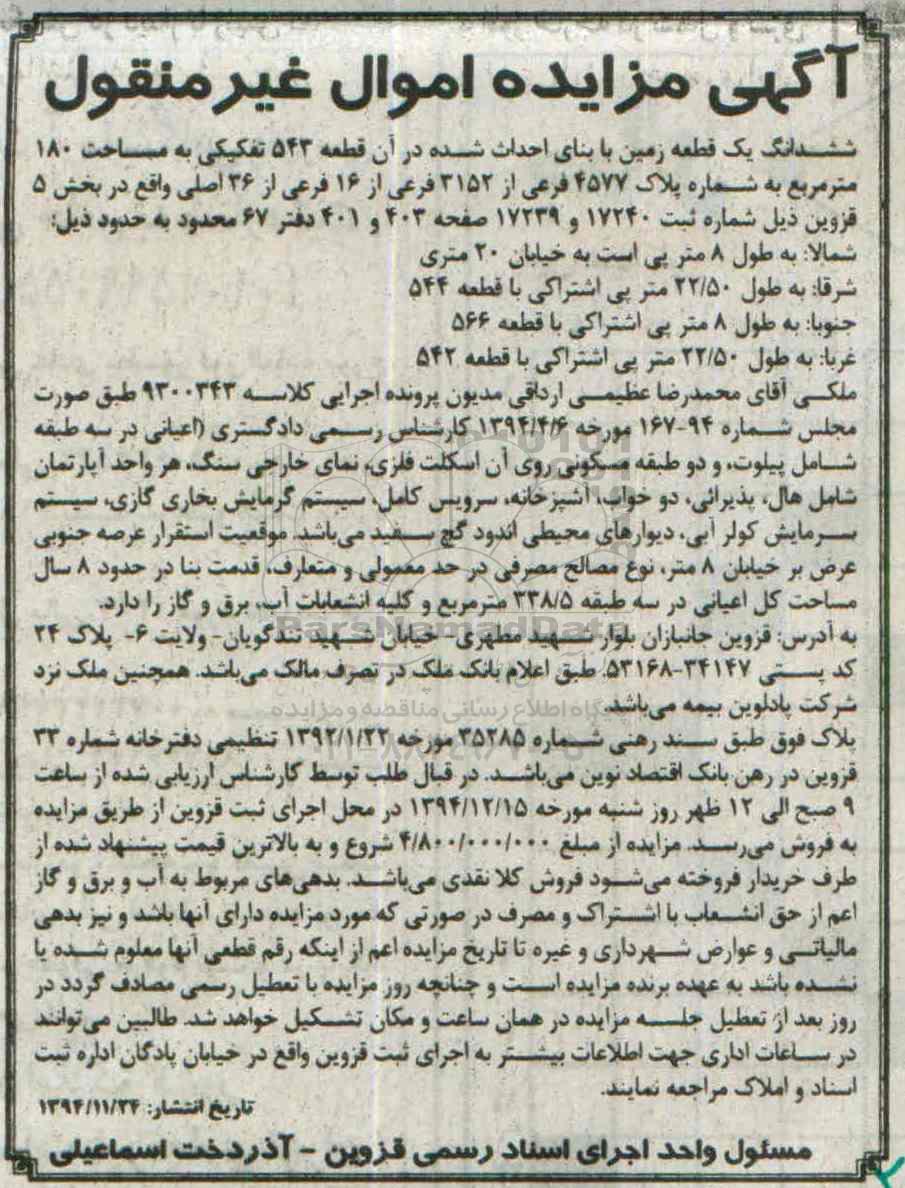 آگهی مزایده اموال غیرمنقول
ششدانگ یک قطعه زمین با بنای احداث شده در آن قطعه ۵۴۳ تفکیکی به مساحت ۱۸۰
مترمربع به شماره پلاک ۴۵۷۷ فرعی از ۳۱۵۲ فرعی از ۱۶ فرعی از ۳۶ اصلی واقع در بخش ۵
قزوین ذیل شماره ثبت ۱۷۲۴۰ و ۱۷۲۳۹ صفحه ۴۰۳ و ۴۰۱ دفتر ۶۷ محدود به حدود ذیل:
شمالا: به طول ۸ متر پی است به خیابان ۲۰ متری
شرقا: به طول ۲۲/۵۰ متر پی اشتراکی با قطعه ۵۴۴
جنوبا: به طول ۸ متر پی اشتراکی با قطعه ۵۶۶
غربا: به طول ۲۲/۵۰ متر پی اشتراکی با قطعه ۵۴۲
ملکی آقای محمدرضا عظیمی ارداقی مدیون پرونده اجرایی کلاسه ۹۳۰۰۳۴۳ طبق صورت
مجلس شماره ۹۴-۱۶۷ مورخه ۱۳۹۴/۴/۶ کارشناس رسمی دادگستری (اعیانی در سه طبقه
شامل پیلوت، و دو طبقه مسکونی روی آن اسکلت فلزی، نمای خارجی سنگ، هر واحد آپارتمان
شامل هال، پذیرائی، دو خواب، آشپزخانه، سرویس کامل، سیستم گرمایش بخاری گازی، سیستم
سرمایش کولر آبی، دیوارهای محیطی اندود گچ سفید می‌باشد. موقعیت استقرار عرصه جنوبی
عرض بر خیابلن ۸ متر، نوع مصالح مصرفی در حد معمولی و متعارف، قدمت بنا در حدود ۸ سال
مساحت کل اعیانی در سه طبقه ۳۳۸/۵ مترمربع و کلیه انشعابات آب، برق و گاز را دارد.
به آدرس: قزوین جانبازان بلوار شهید مطهری- خیابان شهید تندگویان- ولایت ۶- پلاک ۲۴
کد پستی ۳۴۱۴۷-۵۳۱۶۸. طبق اعلام بانک ملک در تصرف مالک می‌باشد. همچنین ملک نزد
شرکت پادلوین بیمه می‌باشد.
پلاک فوق طبق سند رهنی شماره ۳۵۲۸۵ مورخه ۱۳۹۲/۱/۲۲ تنظیمی دفترخانه شماره ۳۳
قزوین در رهن بانک اقتصاد نوین می‌باشد. در قبال طلب توسط کارشناس ارزیابی شده از ساعت
۹ صبح الی ۱۲ ظهر روز شنبه مورخه ۱۳۹۴/۱۲/۱۵ در محل اجرای ثبت قزوین از طریق مزایده
به فروش می‌رسد. مزایده از مبلغ ۴/۸۰۰/۰۰۰/۰۰۰ شروع و به بالاترین قیمت پیشنهاد شده از
طرف خریدار فروخته می‌شود فروش کلا نقدی می‌باشد. بدهی‌های مربوط به آب و برق و گاز
اعم از حق انشعاب با اشتراک و مصرف در صورتی که مورد مزایده دارای آنها باشد و نیز بدهی
مالیاتی و عوارض شهرداری و غیره تا تاریخ مزایده اعم از اینکه رقم قطعی آنها معلوم شده یا
نشده باشد به عهده برنده مزایده است و چنانچه روز مزایده با تعطیل رسمی مصادف گردد در
روز بعد از تعطیل جلسه مزایده در همان ساعت و مکان تشکیل خواهد شد. طالبین می‌توانند
در ساعات اداری جهت اطلاعات بیشتر به اجرای ثبت قزوین واقع در خیابان پادگان اداره ثبت
اسناد و املاک مراجعه نمایند.
تاریخ انتشار: ۱۳۹۴/۱۱/۲۴
مسئول واحد اجرای اسناد رسمی قزوین - آذردخت اسماعیلی
ParsNamadData
پایگاه اطلاع رسانی مناقصه و مزایده